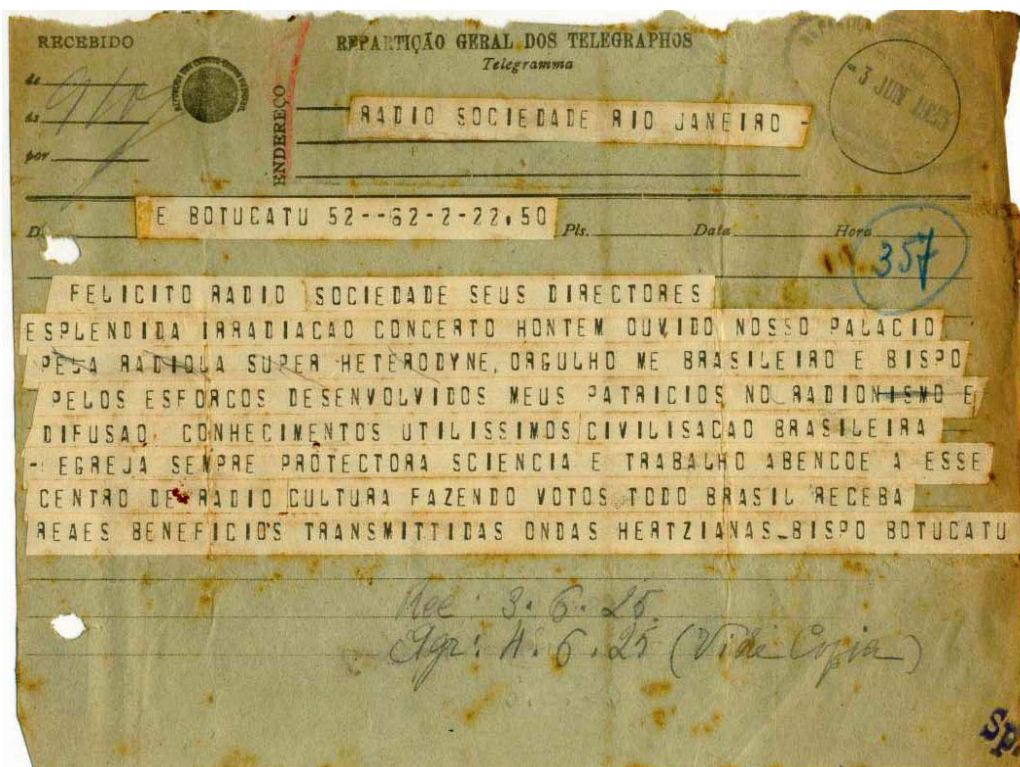 RECEBIDO
REPARTIÇÃO GERAL DOS TELEGRAPHOS
Telegramma
de
ás
por
ENDEREÇO
RADIO SOCIEDADE RIO JANEIRO -
-3 JUN 1925
E BOTUCATU 52--62-2-22,50
Pls. Data Hora
357
FELICITO RADIO SOCIEDADE SEUS DIRECTORES
ESPLENDIDA IRRADIACAO CONCERTO HONTEM OUVIDO NOSSO PALACIO
PELA RADIOLA SUPER HETERODYNE, ORGULHO ME BRASILEIRO E BISPO
PELOS ESFORCOS DESENVOLVIDOS MEUS PATRICIOS NO RADIONISMO E
DIFUSAO CONHECIMENTOS UTILISSIMOS CIVILISACAO BRASILEIRA
- EGREJA SEMPRE PROTECTORA SCIENCIA E TRABALHO ABENCOE A ESSE
CENTRO DE RADIO CULTURA FAZENDO VOTOS TODO BRASIL RECEBA
REAES BENEFICIOS TRANSMITTIDAS ONDAS HERTZIANAS-BISPO BOTUCATU
Rec: 3.6.25
Agr: 4.6.25 (Vide Copia)